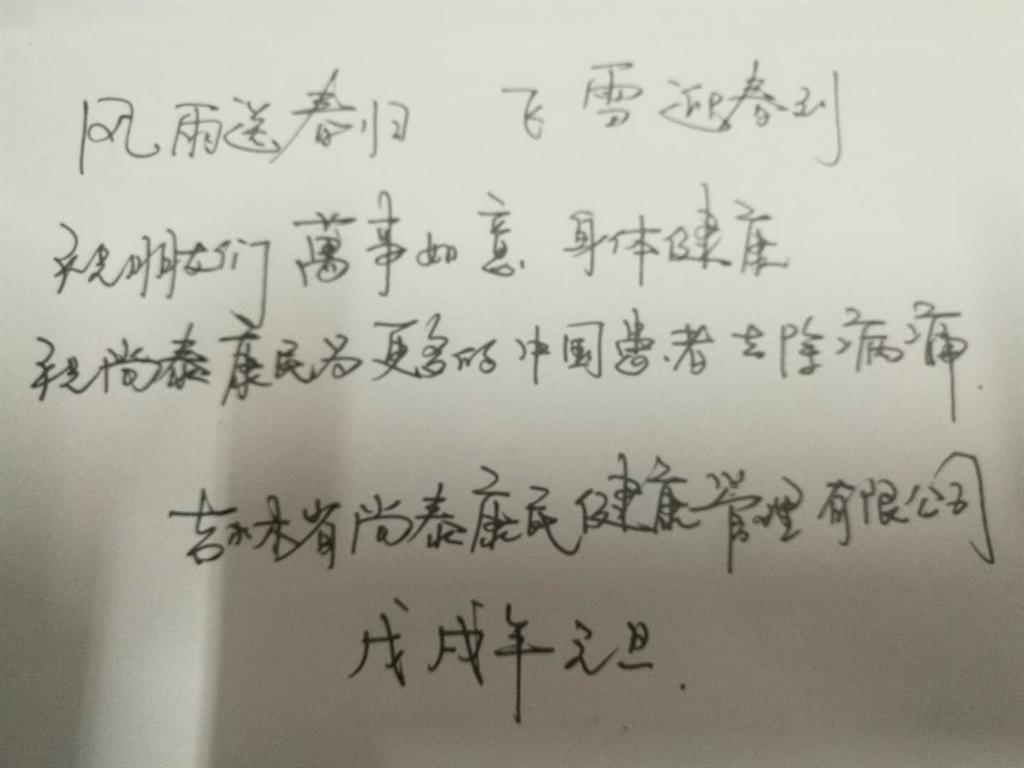 风雨送春归 飞雪迎春到
祝朋友们萬事如意 身体健康
祝尚泰康民为更多的中国患者去除病痛.
吉林省尚泰康民健康管理有限公司
戊戌年元旦.